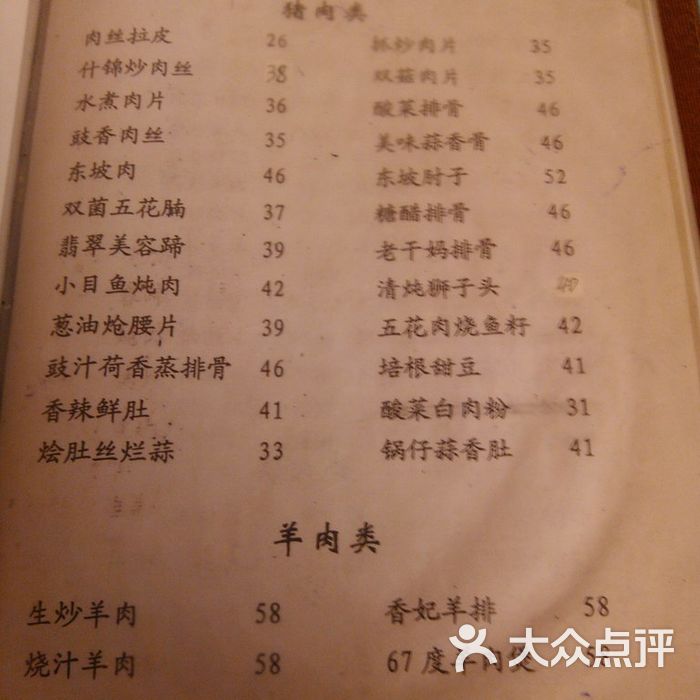 猪肉类
肉丝拉皮 26 抓炒肉片 35
什锦炒肉丝 38 双菇肉片 35
水煮肉片 36 酸菜排骨 46
豉香肉丝 35 美味蒜香骨 46
东坡肉 46 东坡肘子 52
双菌五花腩 37 糖醋排骨 46
翡翠美容蹄 39 老干妈排骨 46
小目鱼炖肉 42 清炖狮子头 40
葱油炝腰片 39 五花肉烧鱼籽 42
豉汁荷香蒸排骨 46 培根甜豆 41
香辣鲜肚 41 酸菜白肉粉 31
烩肚丝烂蒜 33 锅仔蒜香肚 41
羊肉类
生炒羊肉 58 香妃羊排 58
烧汁羊肉 58 67度羊肉煲
大众点评